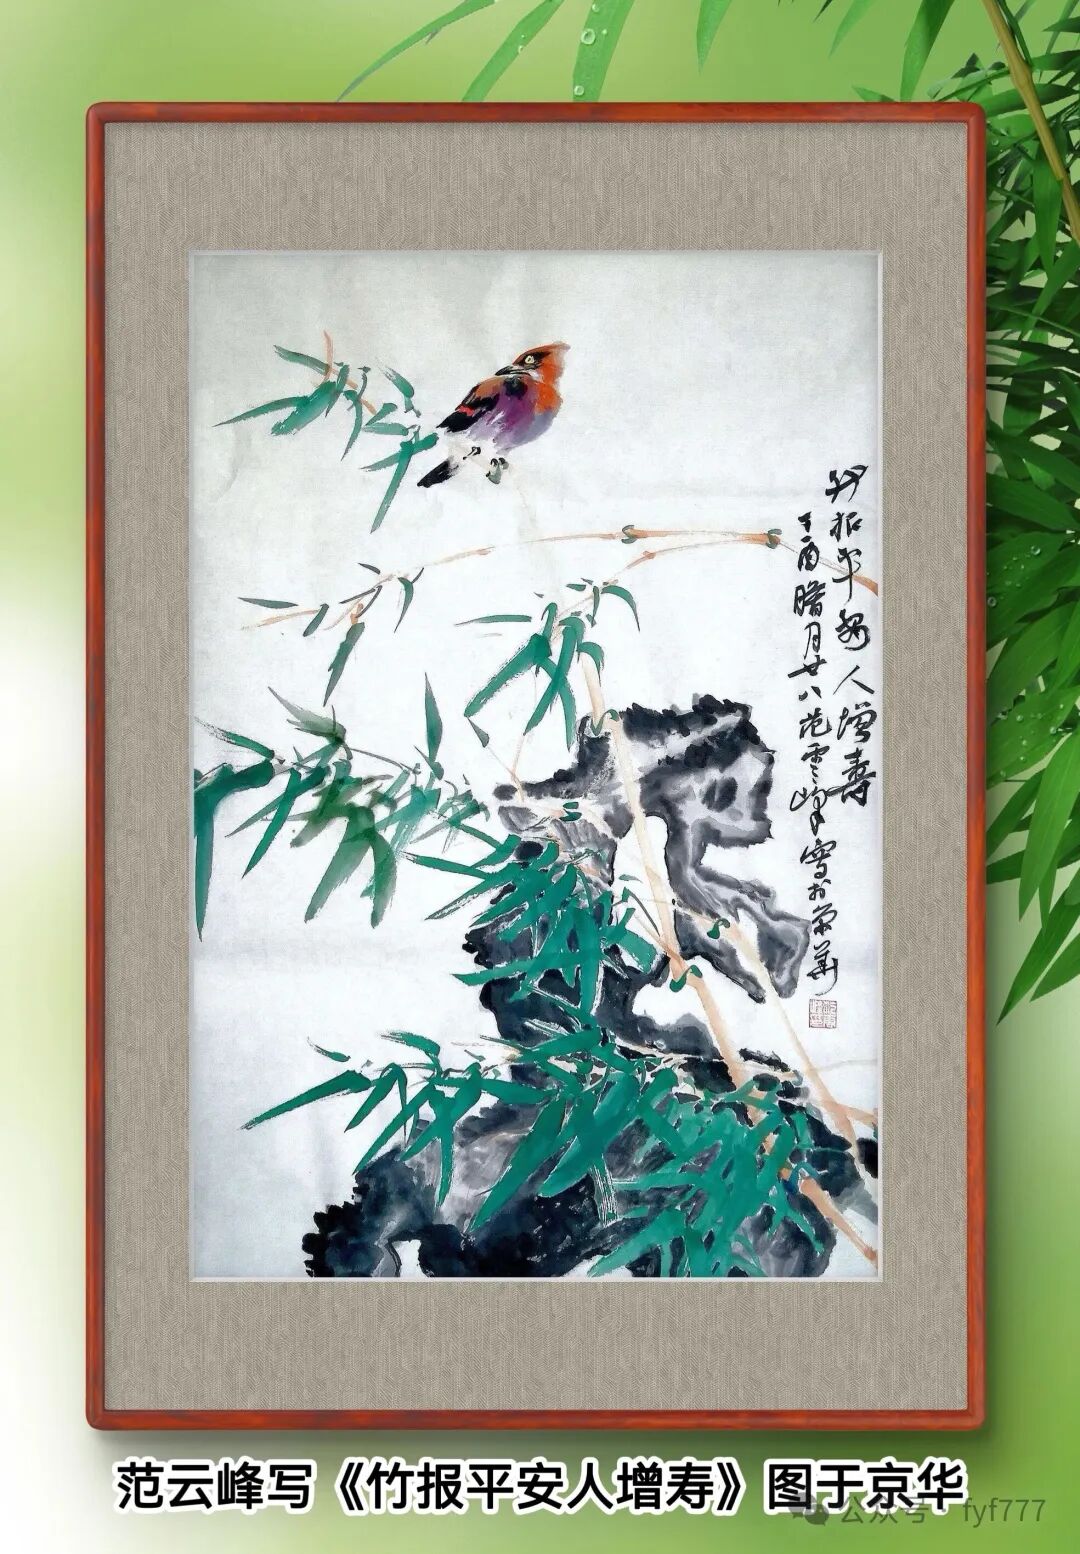 竹报平安人增寿
丁酉腊月廿八范云峰写於京华
范云峰写《竹报平安人增寿》图于京华
公众号 fyf777